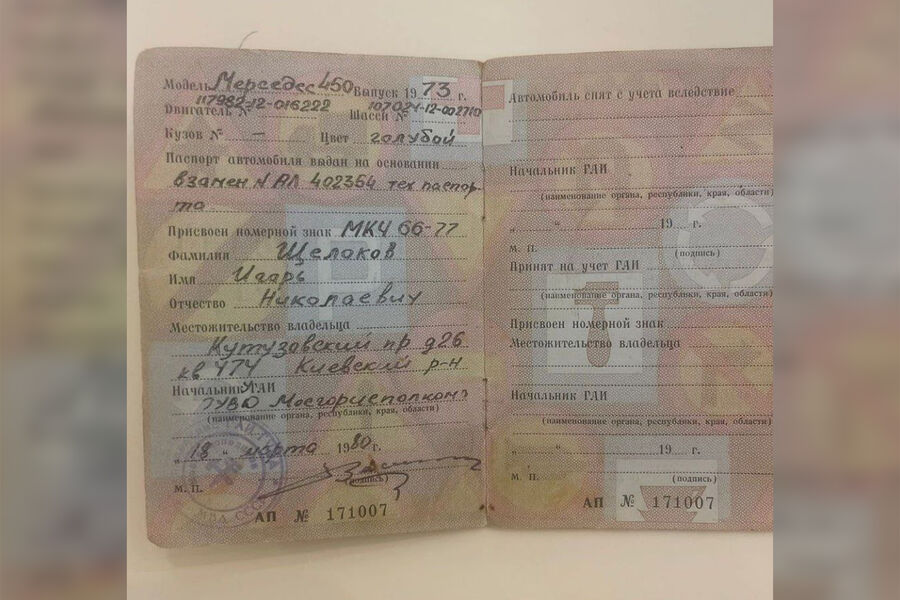 Модель Мерседес 450 Выпуск 1973 г.
117982-12-016222 107024-12-002710
Двигатель № Шасси №
Кузов № — Цвет голубой
Паспорт автомобиля выдан на основании
взамен № АЛ 402364 тех паспор-
та
Присвоен номерной знак МКЧ 66-77
Фамилия Щелаков
Имя Игарь
Отчество Николаевич
Местожительство владельца
Кутузовский пр д 26
кв ЧТЧ Киевский р-н
Начальник ГАИ
Мосгорисполкома
(наименование органа, республики, края, области)
„ 18 “ марта 1980 г.
М. П. (подпись)
МВД СССР
АП № 171007
Автомобиль снят с учета вследствие
Начальник ГАИ
(наименование органа, республики, края, области)
„ “ 19 г.
М. П. (подпись)
Принят на учет ГАИ
(наименование органа, республики, края, области)
Присвоен номерной знак
Местожительство владельца
Начальник ГАИ
(наименование органа, республики, края, области)
„ “ 19 г.
М. П. (подпись)
АП № 171007